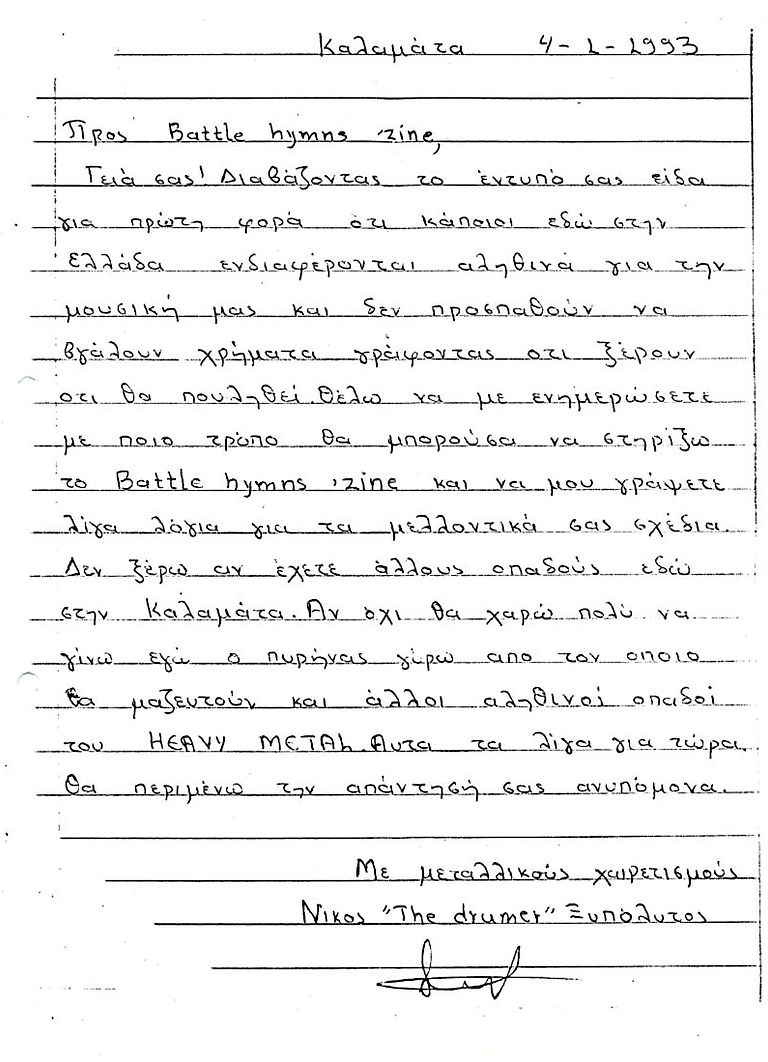 Καλαμάτα 4-1-1993
Προς Battle hymns 'zine,
Γειά σας! Διαβάζοντας το έντυπό σας είδα
για πρώτη φορά ότι κάποιοι εδώ στην
Ελλάδα ενδιαφέρωνται αληθινά για την
μουσική μας και δεν προσπαθούν να
βγάλουν χρήματα γράφοντας οτι ξέρουν
οτι θα πουληθεί. Θέλω να με ενημερώσετε
με ποιο τρόπο θα μπορούσα να στηρίξω
το Battle hymns 'zine και να μου γράψετε
λίγα λόγια για τα μελλοντικά σας σχέδια.
Δεν ξέρω αν έχετε άλλους οπαδούς εδώ
στην Καλαμάτα. Αν όχι θα χαρώ πολύ να
γίνω εγώ ο πυρήνας γύρω απο τον οποιο
θα μαζευτούν και άλλοι αληθινοί οπαδοί
του HEAVY METAL. Αυτα τα λίγα για τώρα.
Θα περιμένω την απάντησή σας ανυπόμονα.
Με μεταλλικούς χαιρετισμούς
Νικος "The drumer" Ξυπόλυτος